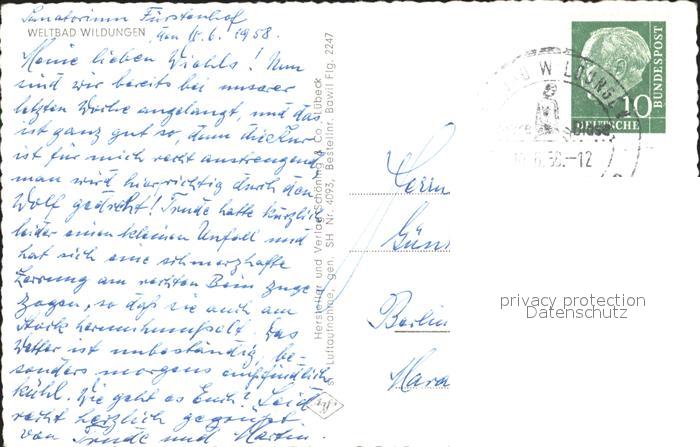 Sanatorium Fürstenhof
WELTBAD WILDUNGEN, den 11.6.1958.
Meine lieben Wiehls! Nun
sind wir bereits bei unserer
letzten Woche angelangt, und das
ist ganz gut so, denn die Kur
ist für mich recht anstrengend
man wird hier richtig durch den
Wolf gedreht! Trude hatte kürzlich
leider einen kleinen Unfall und
hat sich eine schmerzhafte
Zerrung am rechten Bein zuge
zogen, so daß sie auch am
Stock herumhumpelt. Das
Wetter ist unbeständig, be-
sonders morgens empfindlich
kühl. Wie geht es Euch? Seid
recht herzlich gegrüßt
von Trude und Martin.
Hersteller und Verlag Schöning & Co., Lübeck
Luftaufnahme, gen. SH Nr. 4093, Bestellnr. Bawil Flg. 2247
10
DEUTSCHE
BUNDESPOST
BAD WILDUNGEN
.6.58.-12
Herrn
Gün
Berlin
Mara
privacy protection
Datenschutz